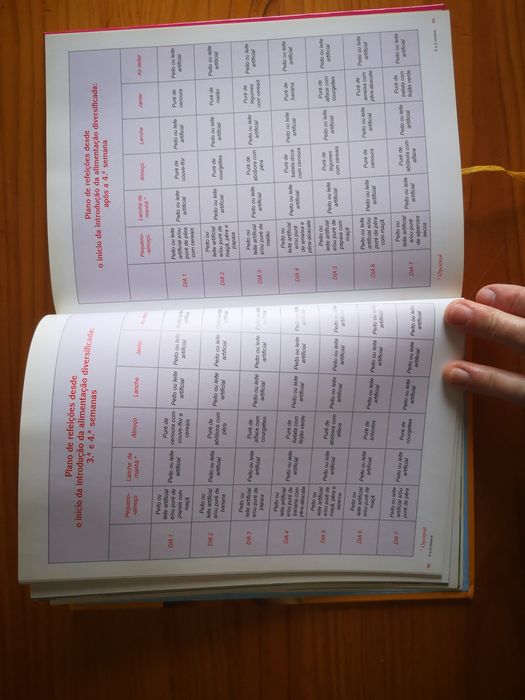 Plano de refeições desde
o início da introdução da alimentação diversificada:
3.ª e 4.ª semanas
Pequeno-
-almoço
Lanche da
manhã *
Almoço
Lanche
Jantar
DIA 1
Peito ou
leite artificial
e/ou puré de
papaia com
maçã
Peito ou leite
artificial
Puré de
cenoura com
couve-flor e
cereais
Peito ou leite
artificial
Peito ou leite
artificial
DIA 2
Peito ou
leite artificial
e/ou puré de
banana
Peito ou leite
artificial
Puré de
abóbora com
pêra
Peito ou leite
artificial
Peito ou leite
artificial
DIA 3
Peito ou
leite artificial
e/ou puré de
papaia
Peito ou leite
artificial
Puré de
alface com
courgettes
Peito ou leite
artificial
Peito ou leite
artificial
DIA 4
Peito ou
leite artificial
e/ou puré de
banana com
pêra-abacate
Peito ou leite
artificial
Puré de
batata com
feijão verde
Peito ou leite
artificial
Peito ou leite
artificial
DIA 5
Peito ou
leite artificial
e/ou puré de
maçã, pêra e
Peito ou leite
artificial
Puré de
abóbora com
alface
Peito ou leite
artificial
Peito ou leite
artificial
DIA 6
Peito ou
leite artificial
e/ou puré de
maçã
Peito ou leite
artificial
Puré de
brócolos
Peito ou leite
artificial
Peito ou leite
artificial
DIA 7
Peito ou leite
artificial e/ou
puré de pêra
Peito ou leite
artificial
Puré de
courgettes
Peito ou leite
artificial
Peito ou leite
artificial
* Opcional
Plano de refeições desde
o início da introdução da alimentação diversificada:
após a 4.ª semana
Pequeno-
-almoço
Lanche da
manhã *
Almoço
Lanche
Jantar
Ao deitar
DIA 1
Peito ou leite
artificial e/ou
puré de pêra
com cereais
Peito ou leite
artificial
Puré de
couve-flor
Peito ou leite
artificial
Puré de
cenoura
Peito ou leite
artificial
DIA 2
Peito ou
leite artificial
e/ou puré de
maçã, pêra e
papaia
Peito ou leite
artificial
Puré de
courgettes
Peito ou leite
artificial
Puré de
melão
Peito ou leite
artificial
DIA 3
Peito ou
leite artificial
e/ou puré de
melão
Peito ou leite
artificial
Puré de
abóbora com
pêra
Peito ou leite
artificial
Puré de
legumes
com cereais
Peito ou leite
artificial
DIA 4
Peito ou
leite artificial
e/ou puré
de ameixa e
pêra-abacate
Peito ou leite
artificial
Puré de
batata-doce
com cenoura
Peito ou leite
artificial
Puré de
banana
Peito ou leite
artificial
DIA 5
Peito ou
leite artificial
e/ou puré de
papaia com
maçã
Peito ou leite
artificial
Puré de
legumes
com cereais
Peito ou leite
artificial
Puré de
alface com
courgettes
Peito ou leite
artificial
DIA 6
Peito ou leite
artificial e/ou
puré de pêra
com maçã
Peito ou leite
artificial
Puré de
cenoura
Peito ou leite
artificial
Puré de
ameixa com
pêra-abacate
Peito ou leite
artificial
DIA 7
Peito ou
leite artificial
e/ou puré
de alperces
secos
Peito ou leite
artificial
Puré de
abóbora com
alface
Peito ou leite
artificial
Puré de
batata com
feijão verde
Peito ou leite
artificial
* Opcional